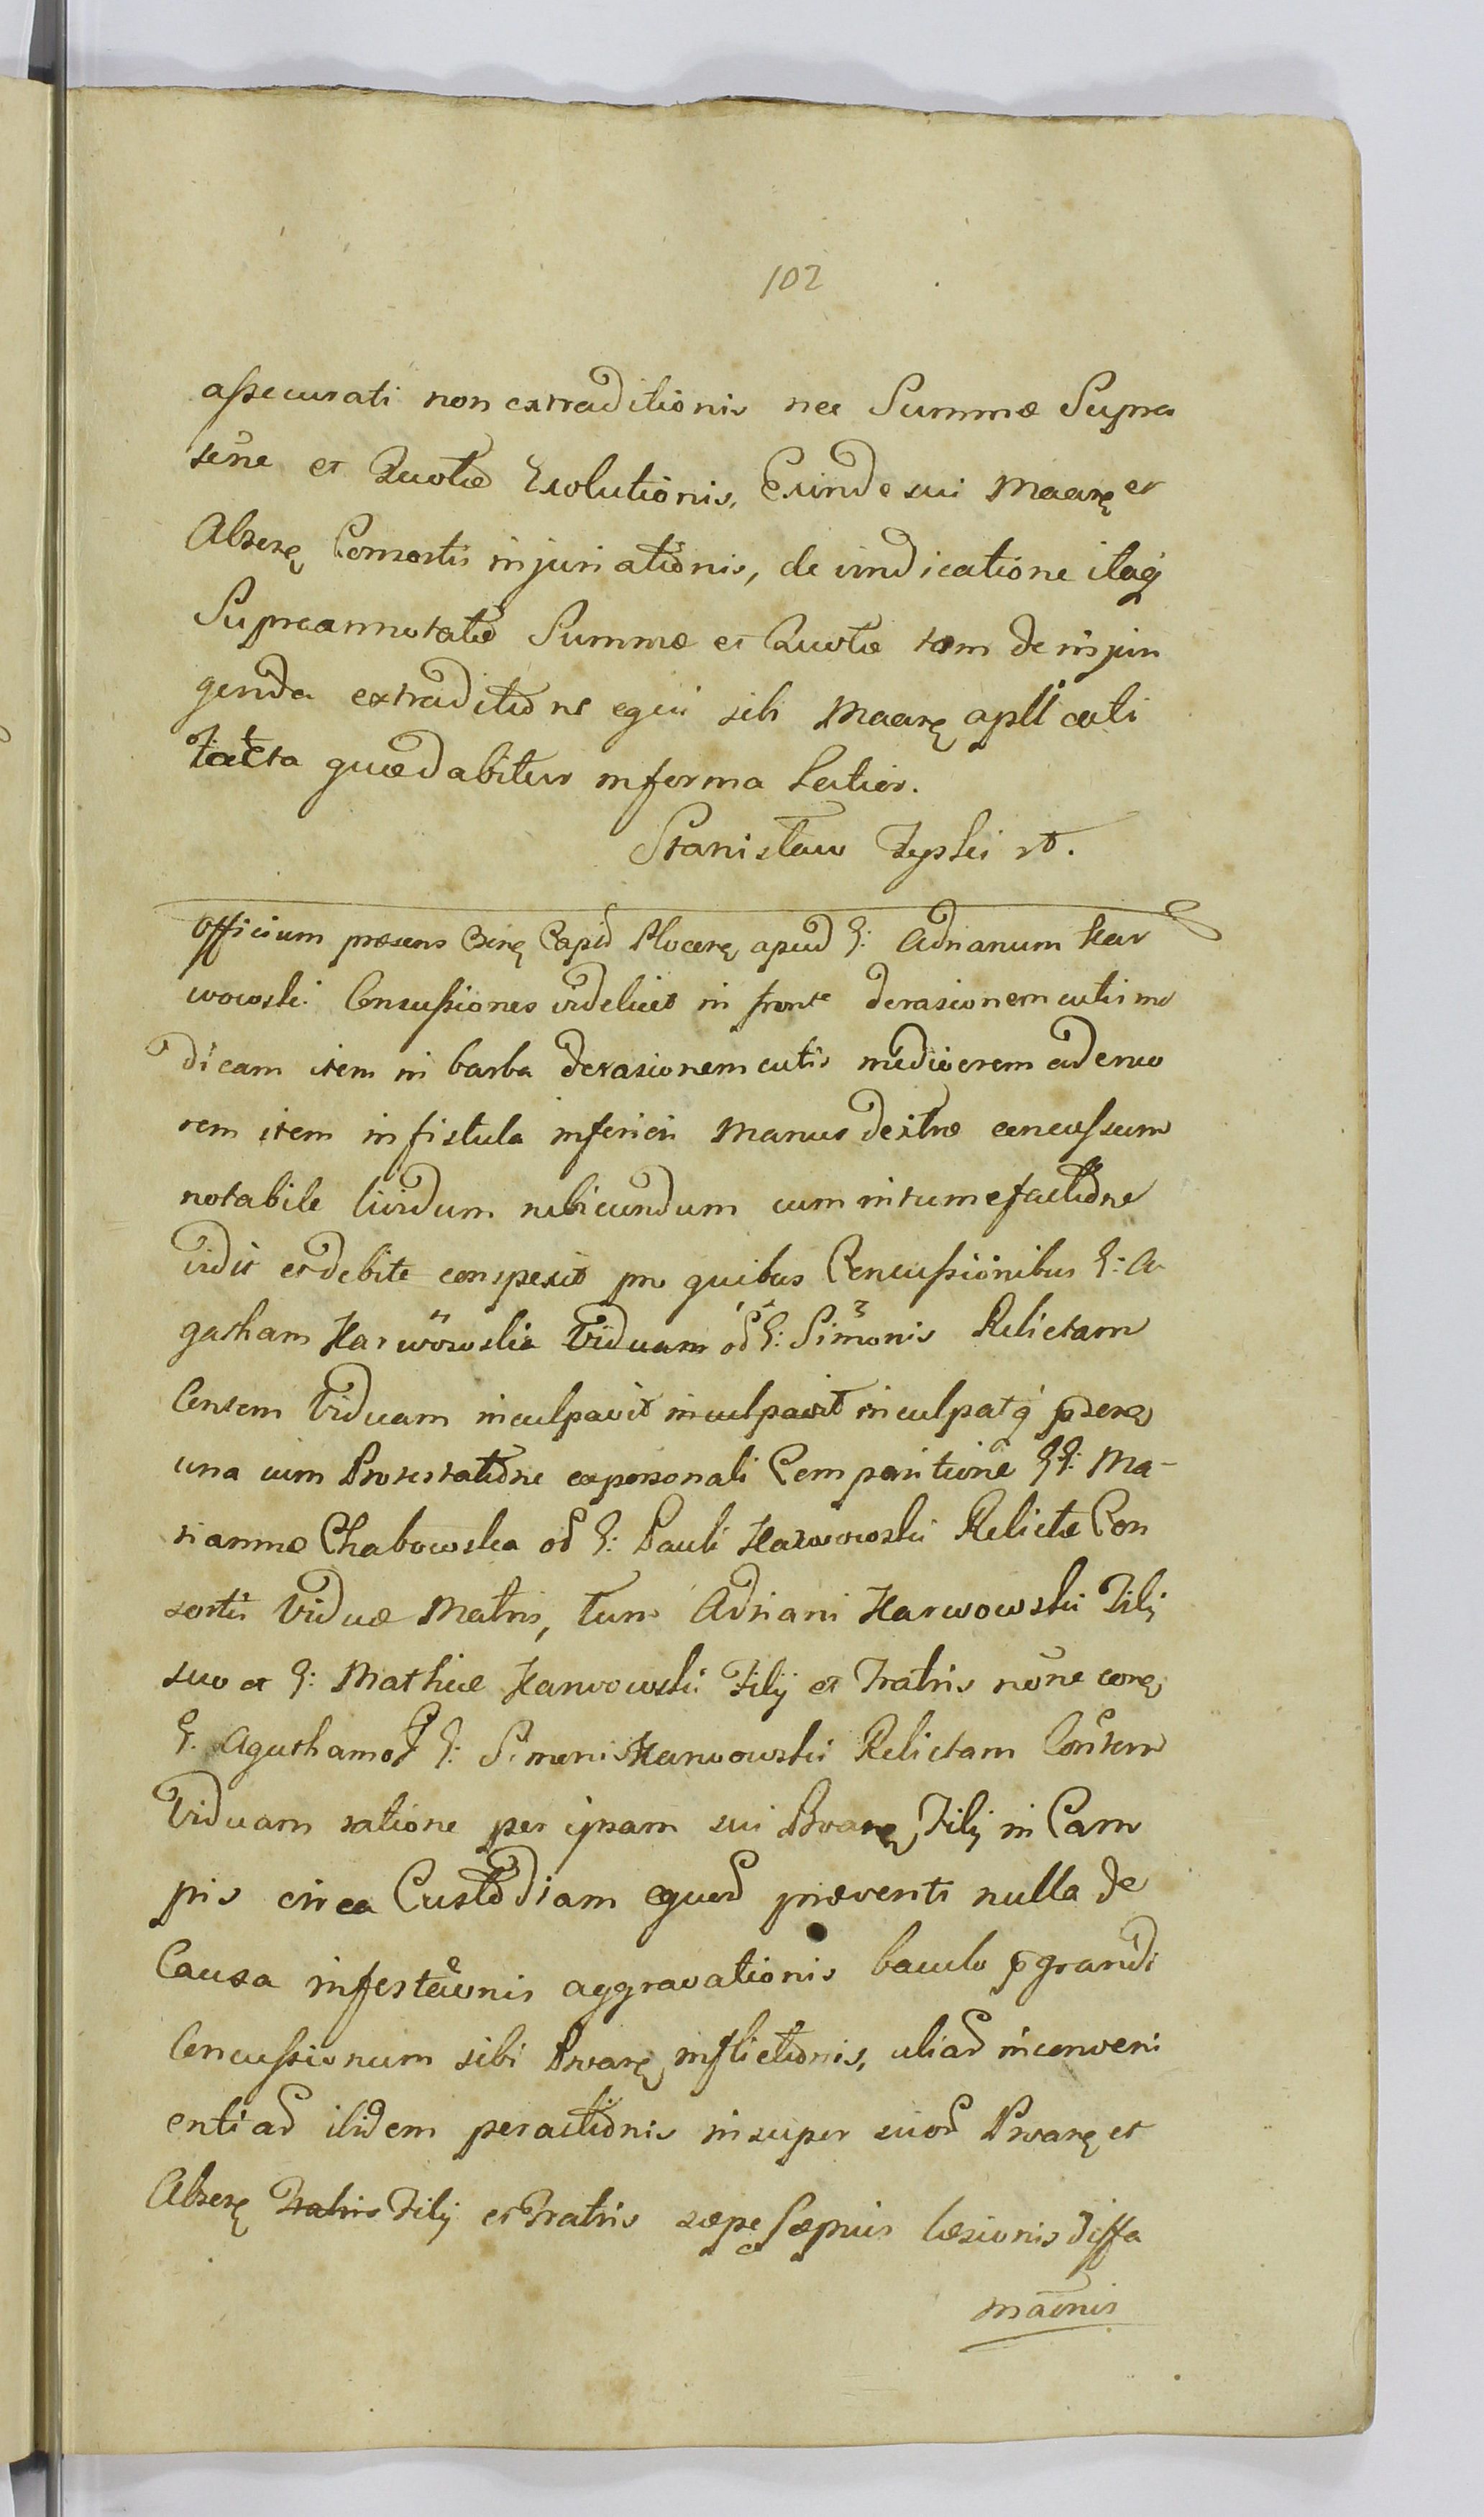 102
assecurati non extraditionis nec Summæ Supra
sēne et Quotæ Exolutionis, Exinde sui Maarę et
Abserę Consortis injuriationis, de vindicatione itaq
Supraannotatæ Summæ et Quotæ tam de rejun
genda extraditione equi sibi Maarę apllicati
tacta quæ dabitur in forma Latior.
Stanisław Zyski
Officium præsens Capło apud G: Adrianum Kar
wowski Concussiones videlicet in fronte derasionem cutis mo
dicam item in barba derasionem cutis mediocrem ad cruo
rem item in fistula inferiori Manus dextræ concussum
notabile lividum rubicundum cum intumefactione
vidit et debite conspexit pro quibus Concussionibus G: A
gatham Karwowska Viduam od G: Simonis Relictam
Consem Viduam inculpavit inculpavit inculpatq
una cum Protestatione ex personali Comparitione GG: Ma-
riannæ Chabowska od G: Pauli Karwowski Relictæ Con
sortis Viduæ Matris, tum Adriani Karwowski Filij
suo et G: Mathiæ Karwowski Filij et Fratris nōne corę
G: Agatham od G: Simonis Karwowski Relictam Consem
Viduam ratione per ipsam sui Filij in Cam
pis circa Custodiam equod præventi nulla de
Causa infestaōnis aggravationis baculo pgrandi
Concussionum sibi inflictionis, aliad inconveni
entiad ibidem peractionis insuper suod et
Abserę Fratris Filij et Fratris sæpe sæpius læsionis diffa
māonis